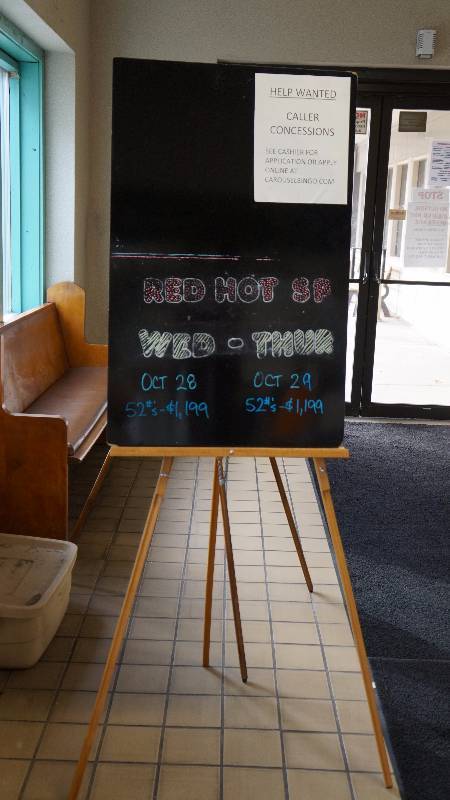 HELP WANTED
CALLER
CONCESSIONS
SEE CASHIER FOR
APPLICATION OR APPLY
ONLINE AT
CAROUSELBINGO.COM
RED HOT SP
WED - THUR
OCT 28 OCT 29
52#'s-$1,199 52#'s-$1,199
STOP